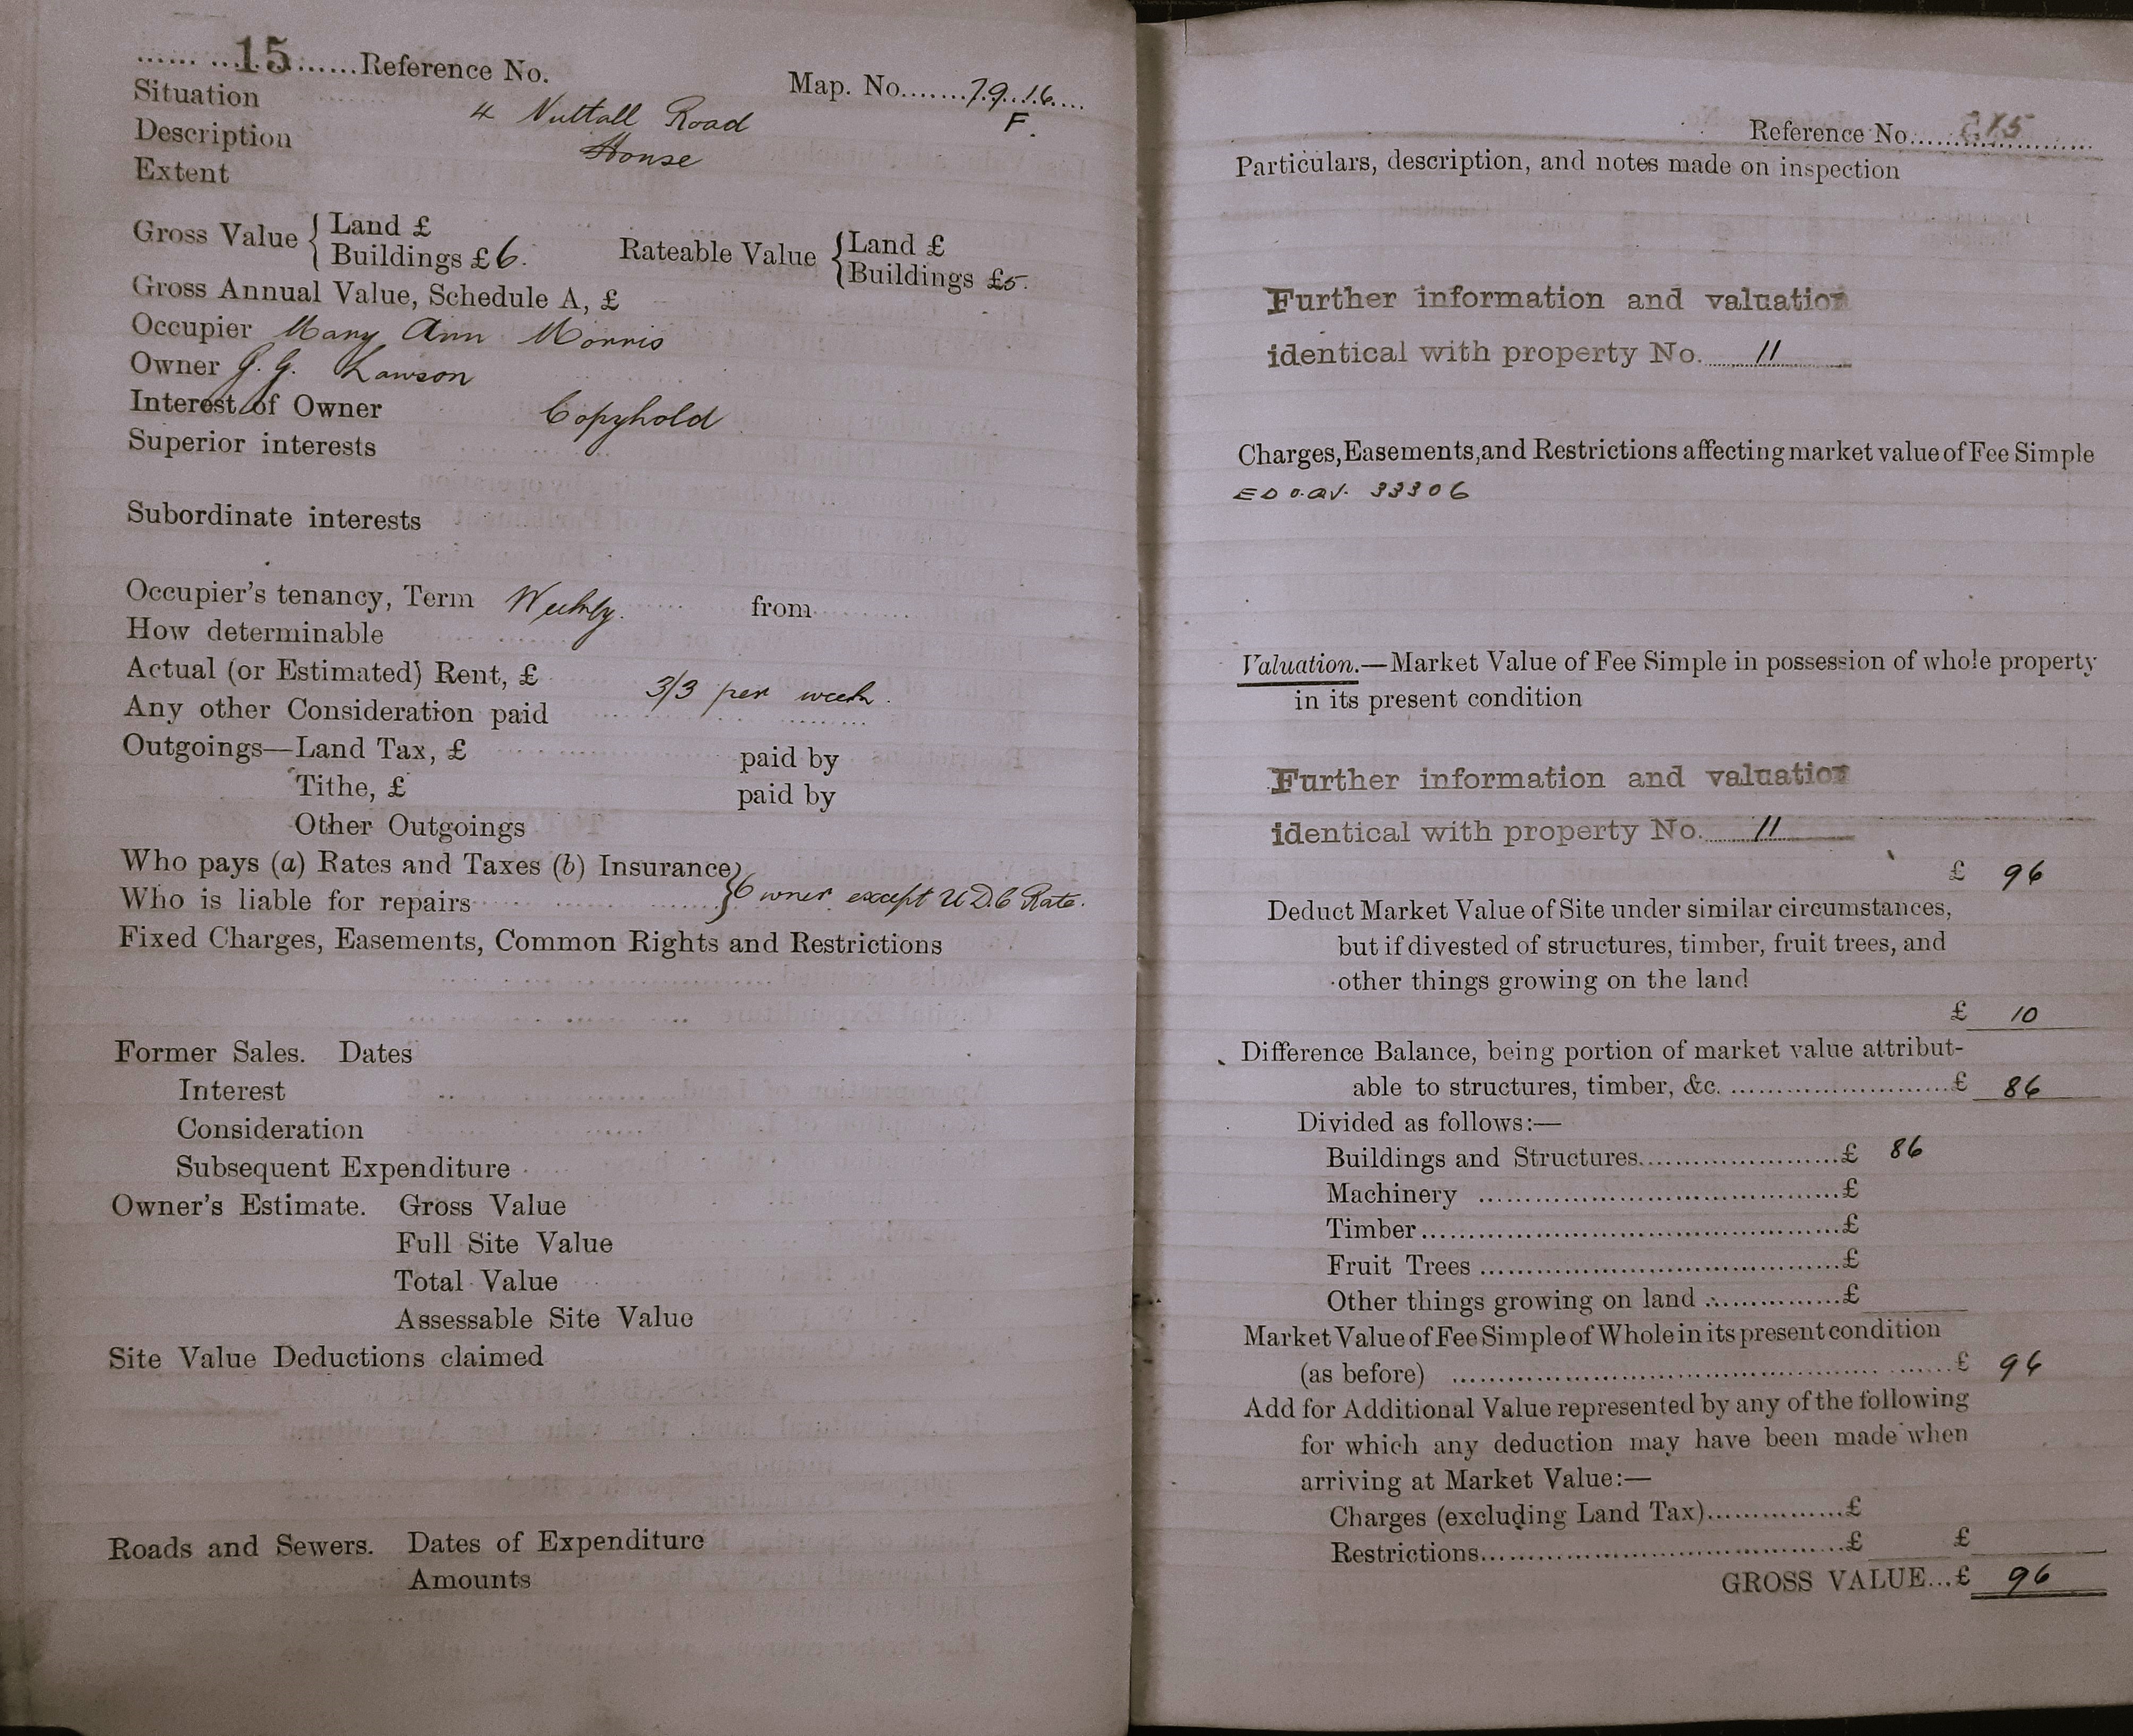 15 Reference No.
Map. No. 79.16.
F.
Situation 4 Nuttall Road
Description House
Extent
Gross Value { Land £
Buildings £ 6.
Rateable Value { Land £
Buildings £ 5.
Gross Annual Value, Schedule A, £
Occupier Mary Ann Morris
Owner G. G. Lawson
Interest of Owner Copyhold
Superior interests
Subordinate interests
Occupier's tenancy, Term Weekly. from
How determinable
Actual (or Estimated) Rent, £ 3/3 per week.
Any other Consideration paid
Outgoings—Land Tax, £ paid by
Tithe, £ paid by
Other Outgoings
Who pays (a) Rates and Taxes (b) Insurance
Who is liable for repairs } Owner except U D.C Rate.
Fixed Charges, Easements, Common Rights and Restrictions
Former Sales. Dates
Interest
Consideration
Subsequent Expenditure
Owner's Estimate. Gross Value
Full Site Value
Total Value
Assessable Site Value
Site Value Deductions claimed
Roads and Sewers. Dates of Expenditure
Amounts
Reference No.
Particulars, description, and notes made on inspection
Further information and valuation
identical with property No. 11
Charges, Easements, and Restrictions affecting market value of Fee Simple
33306
Valuation.—Market Value of Fee Simple in possession of whole property
in its present condition
Further information and valuation
identical with property No. 11
£ 96
Deduct Market Value of Site under similar circumstances,
but if divested of structures, timber, fruit trees, and
other things growing on the land
£ 10
Difference Balance, being portion of market value attribut-
able to structures, timber, &c. £ 86
Divided as follows:—
Buildings and Structures £ 86
Machinery £
Timber £
Fruit Trees £
Other things growing on land £
Market Value of Fee Simple of Whole in its present condition
(as before) £ 96
Add for Additional Value represented by any of the following
for which any deduction may have been made when
arriving at Market Value:—
Charges (excluding Land Tax) £
Restrictions £ £
GROSS VALUE...£ 96